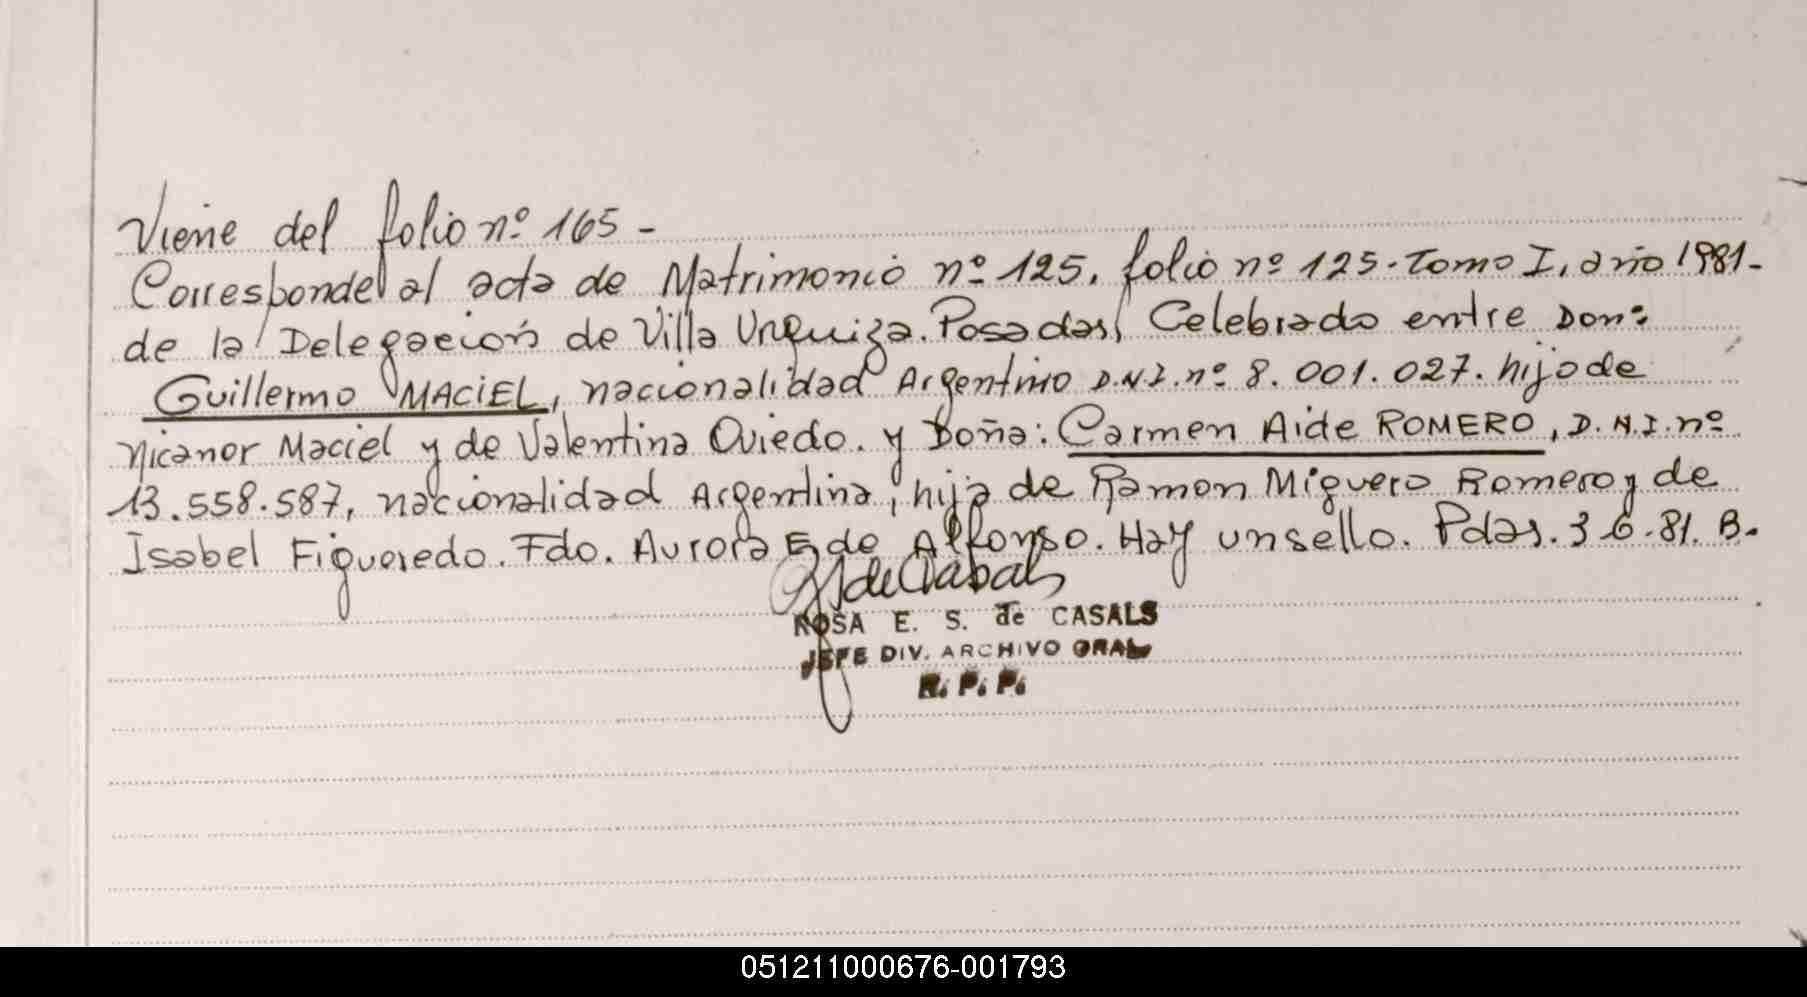 Viene del folio nº 165 -
Corresponde al acta de Matrimonio nº 125, folio nº 125. Tomo I, año 1981-
de la Delegación de Villa Urquiza. Posadas, Celebrado entre Don:
Guillermo MACIEL, nacionalidad Argentino D.N.I. nº 8.001.027. hijo de
Nicanor Maciel y de Valentina Oviedo. y Doña: Carmen Aide ROMERO, D.N.I. nº
13.558.587, nacionalidad Argentina, hija de Ramon Miguero Romero y de
Isabel Figueredo. Fdo. Aurora E de Alfonso. Hay un sello. Pdas. 3 6.81. B.
ROSA E. S. de CASALS
JEFE DIV. ARCHIVO GRAL
R. P. P.
051211000676-001793